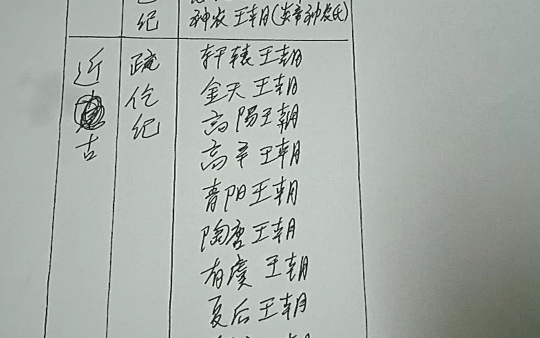 纪
神农王朝(炎帝神农氏)
近古
疏仡纪
轩辕王朝
金天王朝
高阳王朝
高辛王朝
青阳王朝
陶唐王朝
有虞王朝
夏后王朝